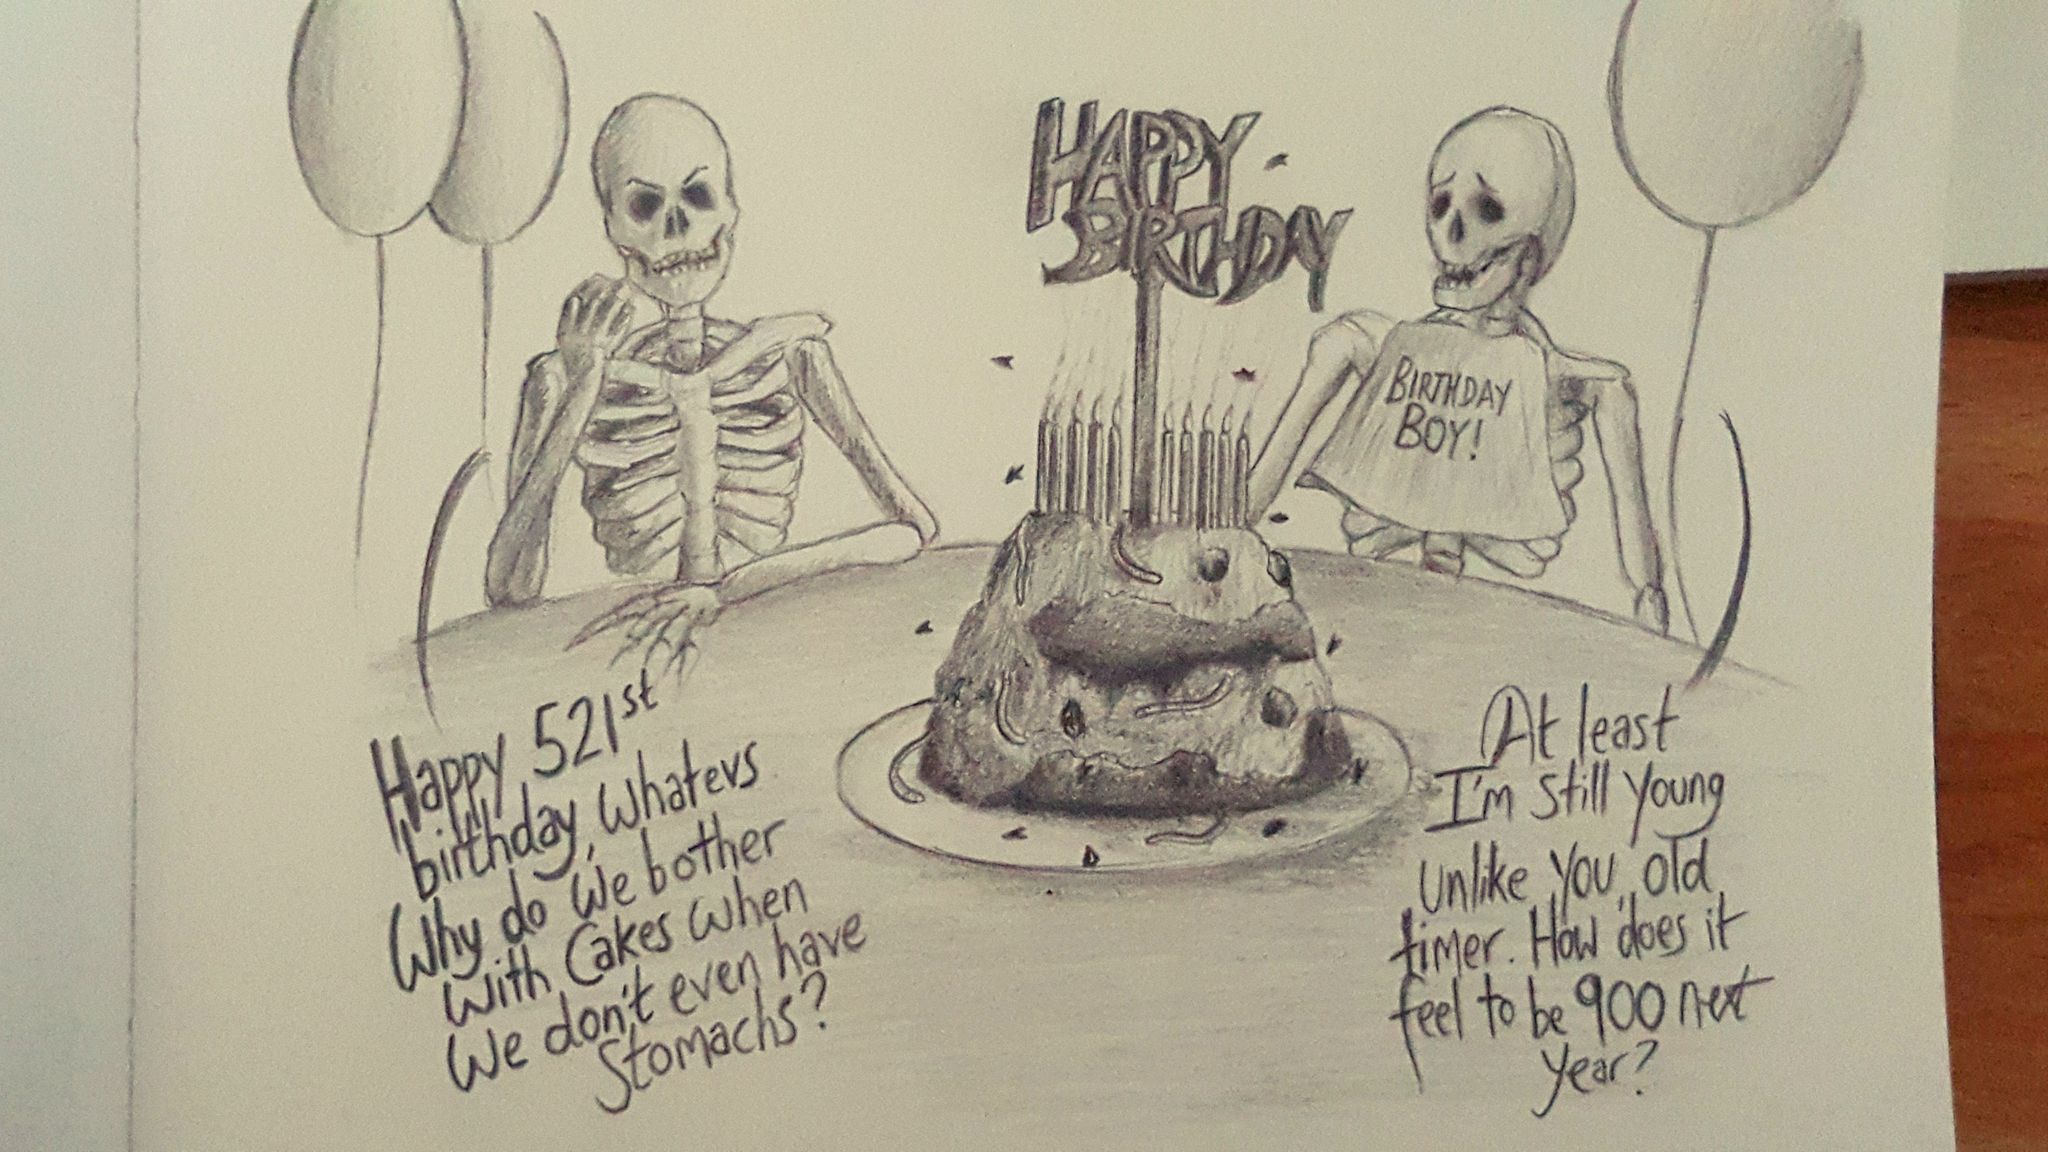 HAPPY
BIRTHDAY
BIRTHDAY
BOY!
Happy 521st
birthday, whatevs
Why do we bother
with cakes when
we don't even have
stomachs?
At least
I'm still young
unlike you, old
timer. How does it
feel to be 900 next
year?